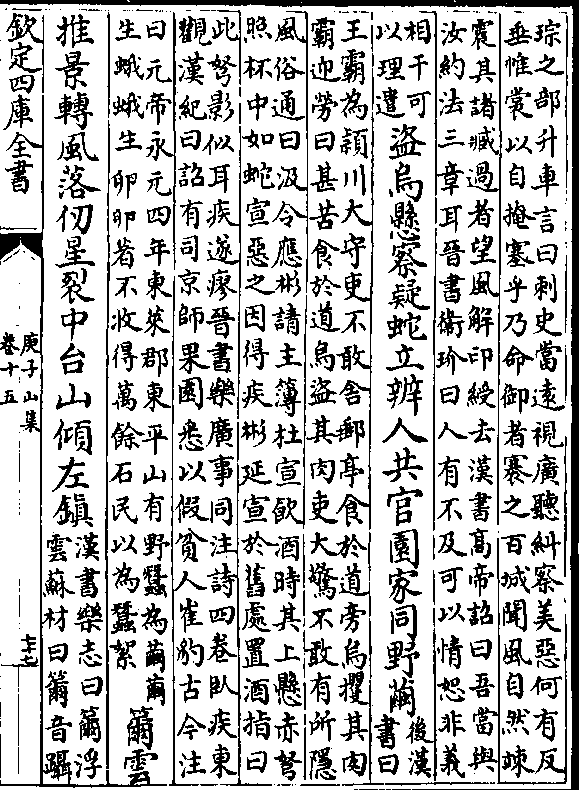 琮之部升車言曰刺史當遠視廣聽糾察美惡何有反
垂帷裳以自掩塞乎乃命御者褰之百城聞風自然竦
震其諸臧過者望風解印綬去漢書高帝詔曰吾當與
汝約法三章耳晉書衛玠曰人有不及可以情恕非義
相干可
以理遣
盜烏懸察疑蛇立辨人共官園家同野繭
後漢
書曰
王霸為潁川大守吏不敢舍郵亭食於道旁烏攫其肉
霸迎勞曰甚苦食於道烏盜其肉吏大驚不敢有所隱
風俗通曰汲令應彬請主簿杜宣飲酒時其上懸赤弩
照杯中如蛇宣惡之因得疾彬延宣於舊處置酒指曰
此弩影似耳疾遂瘳晉書樂廣事同注詩四卷卧疾東
觀漢紀曰詔有司京師果園悉以假貧人崔豹古今注
曰元帝永元四年東萊郡東平山有野蠶為繭繭
生蛾蛾生卵卵著不收得萬餘石民以為蠶絮
簫雲
推景轉風落仞星裂中台山傾左鎮
漢書樂志曰簫浮
雲蘇材曰簫音躡
欽定四庫全書
庾子山集
卷十五
七十七